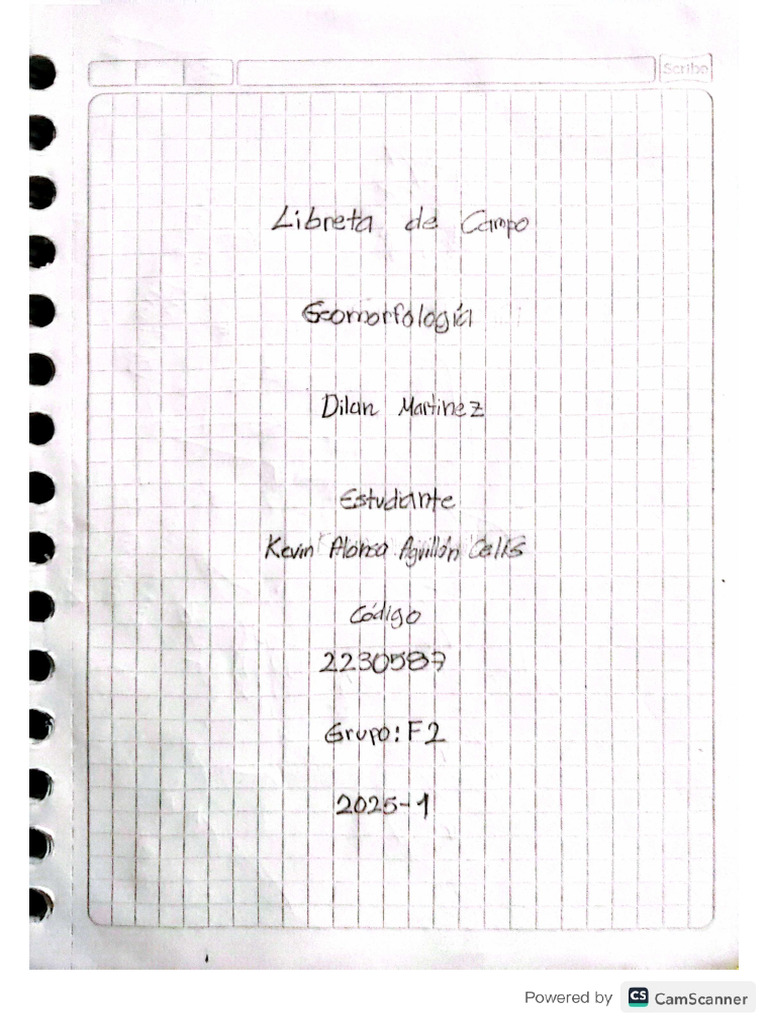 Scribe
Libreta de Campo
Geomorfología
Dilan Martinez
Estudiante
Kevin Alonso Aguillón Celis
Código
2230587
Grupo: F2
2025-1
Powered by CS CamScanner